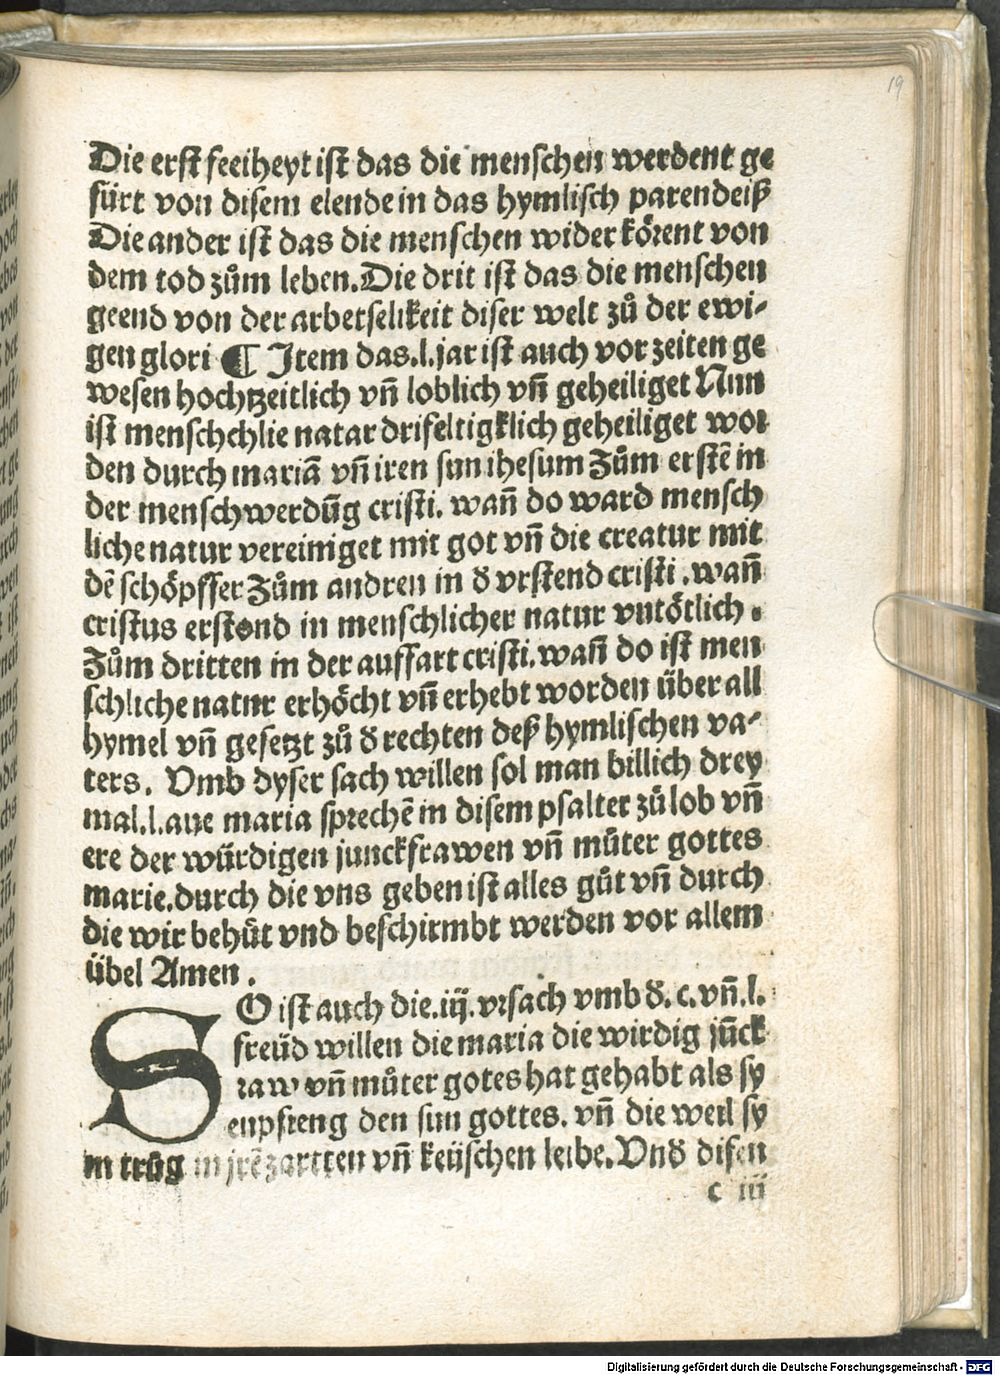 19
Die erst feeiheyt ist das die menschen werdent ge
fürt von disem elende in das hymlisch parendeiß
Die ander ist das die menschen wider körent von
dem tod zům leben. Die drit ist das die menschen
geend von der arbetselikeit diser welt zů der ewi-
gen glori ¶ Item das .l. jar ist auch vor zeiten ge
wesen hochtzeitlich vñ loblich vñ geheiliget Nun
ist menschchlie natar drifeltigklich geheiliget wor
den durch mariā vñ iren sun ihesum Zům erstē in
der menschwerdūg cristi. wañ do ward mensch
liche natur vereiniget mit got vñ die creatur mit
dē schöpffer Zům andren in d̕ vrstend cristi . wañ
cristus erstond in menschlicher natur vntötlich .
Zům dritten in der auffart cristi. wañ do ist men
schliche natur erhöcht vñ erhebt worden über all
hymel vñ gesetzt zů d̕ rechten deß hymlischen va-
ters. Vmb dyser sach willen sol man billich drey
mal .l. aue maria sprechē in disem psalter zů lob vñ
ere der würdigen junckfrawen vñ můter gottes
marie. durch die vns geben ist alles gůt vñ durch
die wir behůt vnd beschirmbt werden vor allem
übel Amen .
SO ist auch die .iij. vrsach vmb d̕ .c. vñ .l.
freüd willen die maria die wirdig jūck
raw vñ můter gotes hat gehabt als sy
enpfieng den sun gottes. vñ die weil sy
in trůg in jrē zartten vñ keüschen leibe. Vnd̕ disen
c iij
Digitalisierung gefördert durch die Deutsche Forschungsgemeinschaft - DFG